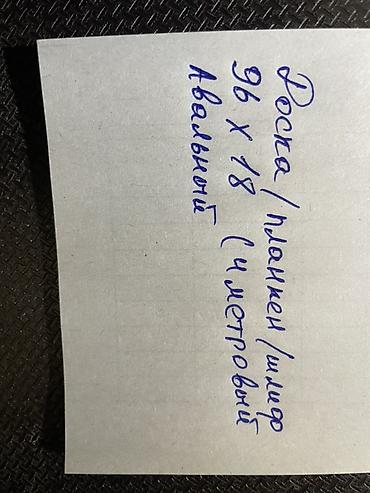 Доска/планкен/шлиф
96 х 18 (4 метровый
Авальный